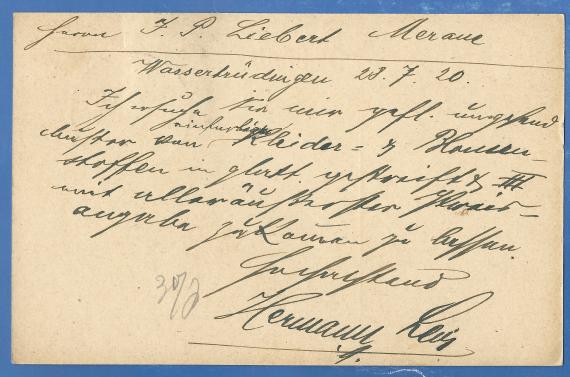 Herrn J. P. Liebert Merane
Wassertrüdingen 23. 7. 20.
Ich ersuche Sie mir gefl. umgehend
einfarbigen
Muster von Kleider- & Blousen-
stoffen in glatt gestreift &
mit alleräußerster Preis-
angabe zukommen zu lassen.
Hochachtend
Hermann Levi